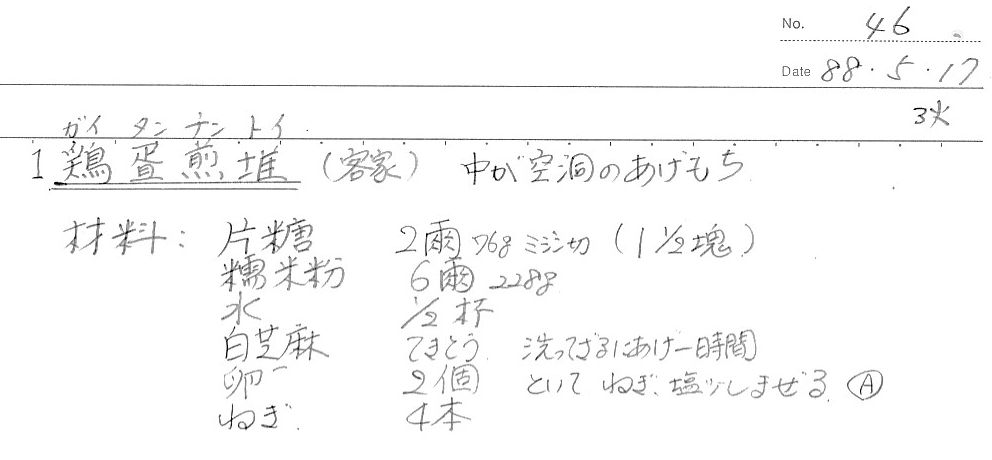 No. 46
Date 88・5・17
3火
ガイ タン ナン トイ
1 鶏蛋煎堆 (客家) 中が空洞のあげもち
材料: 片糖 2兩 76g ミジン切 (1 1/2塊)
糯米粉 6兩 228g
水 1/2 杯
白芝麻 てきとう 洗ってざるにあげ一時間
卵 2個 といて ねぎ、塩少しまぜる Ⓐ
ねぎ 4本